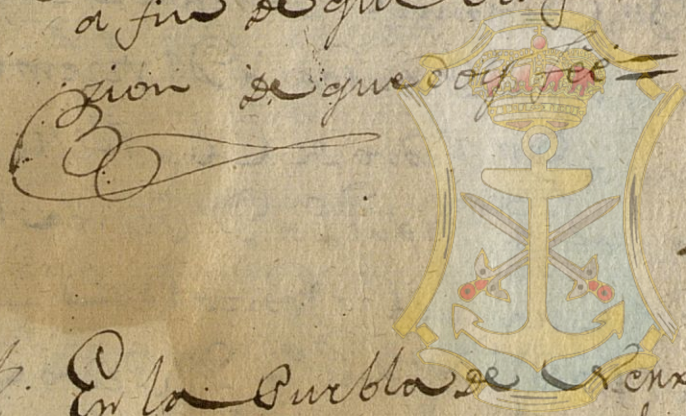 a fin de que
zion de que doy fee =
En la Puebla de